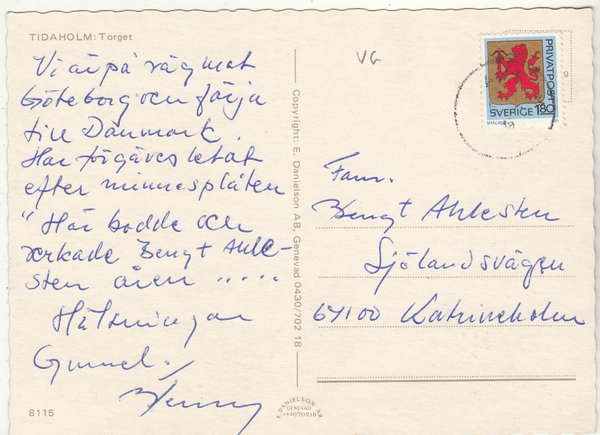 TIDAHOLM: Torget
Vi är på väg mot
Göteborg och färja
till Danmark.
Har förgäves letat
efter minnesplåten
"Här bodde och
verkade Bengt Ahle-
sten åren .....
Hälsningar
Gunnel.
Benny
8115
Copyright: E. Danielson AB, Genevad 0430/702 18
VG
PRIVATPOST
SVERIGE 180
SMÅLAND
Fam.
Bengt Ahlesten
Sjölandsvägen
64100 Katrineholm
E. DANIELSON AB
GENEVAD
0430/702 18